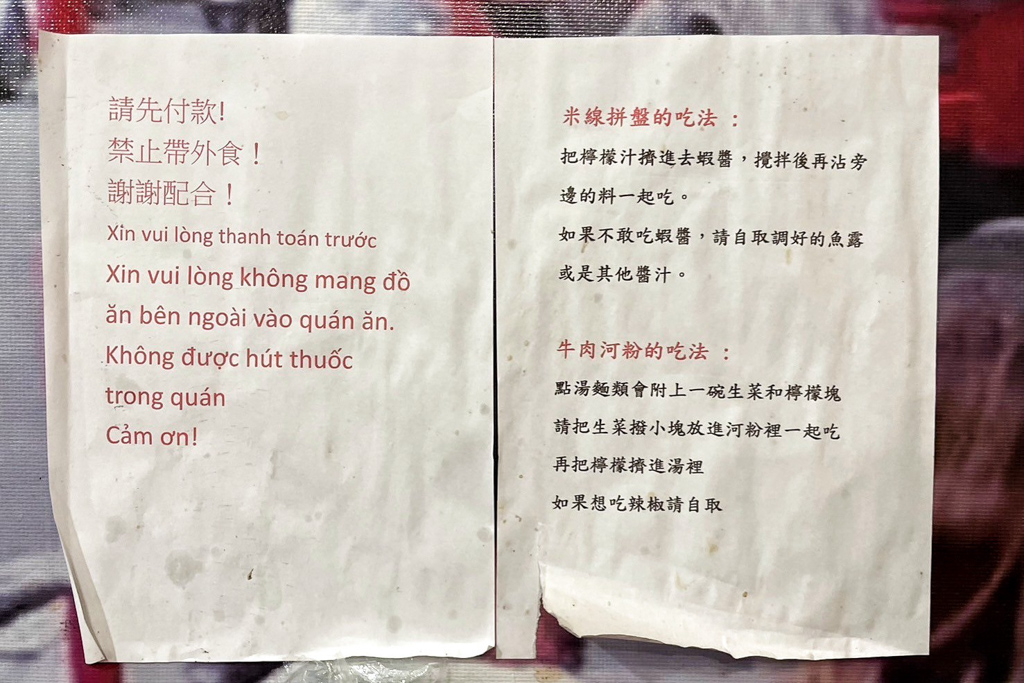 請先付款!
禁止帶外食！
謝謝配合！
Xin vui lòng thanh toán trước
Xin vui lòng không mang đồ
ăn bên ngoài vào quán ăn.
Không được hút thuốc
trong quán
Cảm ơn!
米線拼盤的吃法：
把檸檬汁擠進去蝦醬，攪拌後再沾旁
邊的料一起吃。
如果不敢吃蝦醬，請自取調好的魚露
或是其他醬汁。
牛肉河粉的吃法：
點湯麵類會附上一碗生菜和檸檬塊
請把生菜撥小塊放進河粉裡一起吃
再把檸檬擠進湯裡
如果想吃辣椒請自取